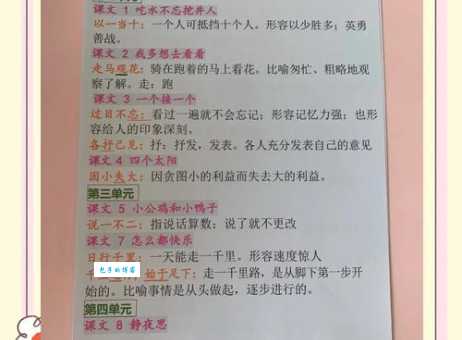 课文 1 吃水不忘挖井人
以一当十：一个人可抵挡十个人。形容以少胜多；英勇
善战。
课文 2 我多想去看看
走马观花：骑在跑着的马上看花。比喻匆忙、粗略地观
察了解。走：跑
课文 3 一个接一个
过目不忘：看过一遍就不会忘记；形容记忆力强；也形
容给人的印象深刻。
各抒己见：抒：抒发，发表。各人充分发表自己的意见
课文 4 四个太阳
因小失大：因贪图小的利益而失去大的利益。
第三单元
课文 5 小公鸡和小鸭子
说一不二：指说话算数；说了就不更改
课文 7 怎么都快乐
日行千里：一天能走一千里。形容速度惊人
千 始于足下：走一千里路，是从脚下第一步开
始的。比喻事情是从头做起，逐步进行的。
第四单元
课文 8 静夜思